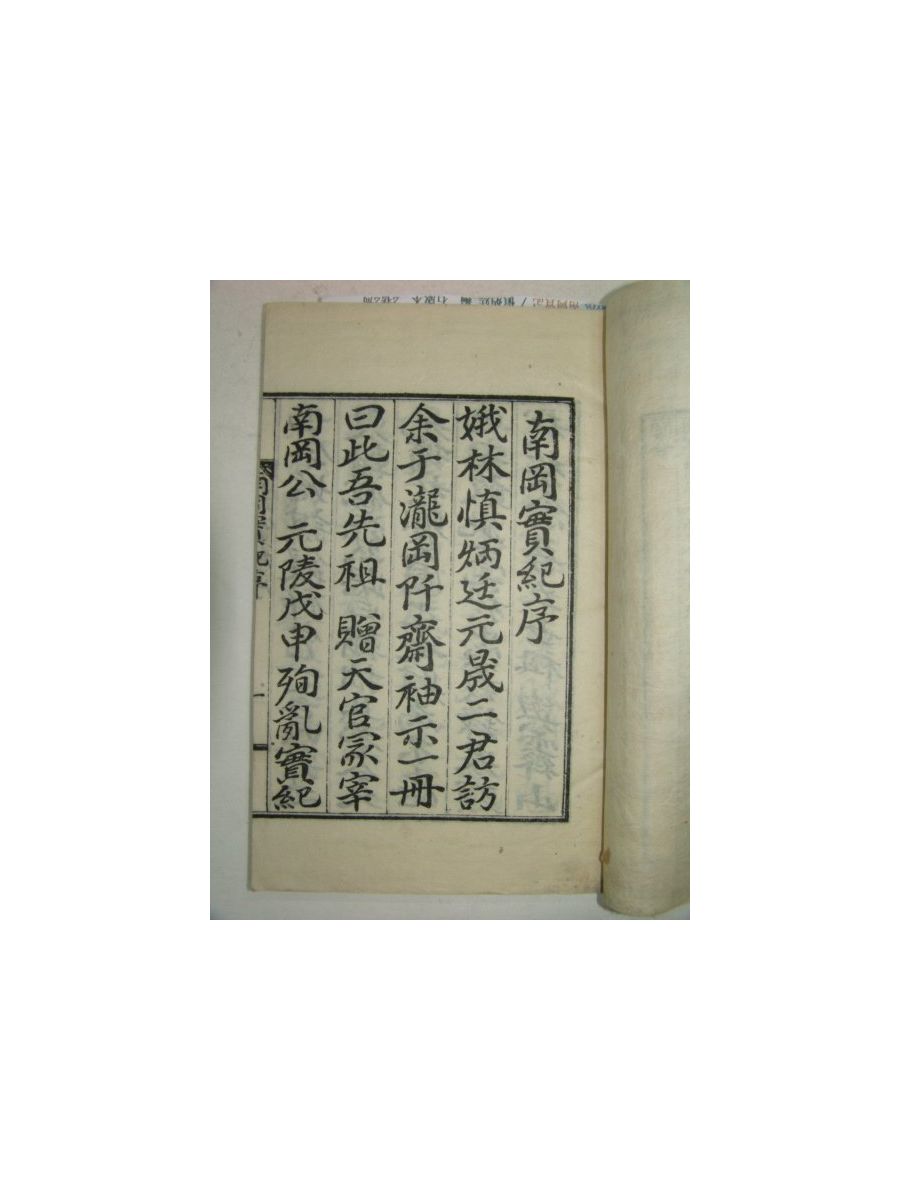 南岡實紀序
娥林愼炳廷元晟二君訪
余于瀧岡阡齋袖示一冊
曰此吾先祖 贈天官冢宰
南岡公 元陵戊申殉亂實紀
南岡實紀序
一